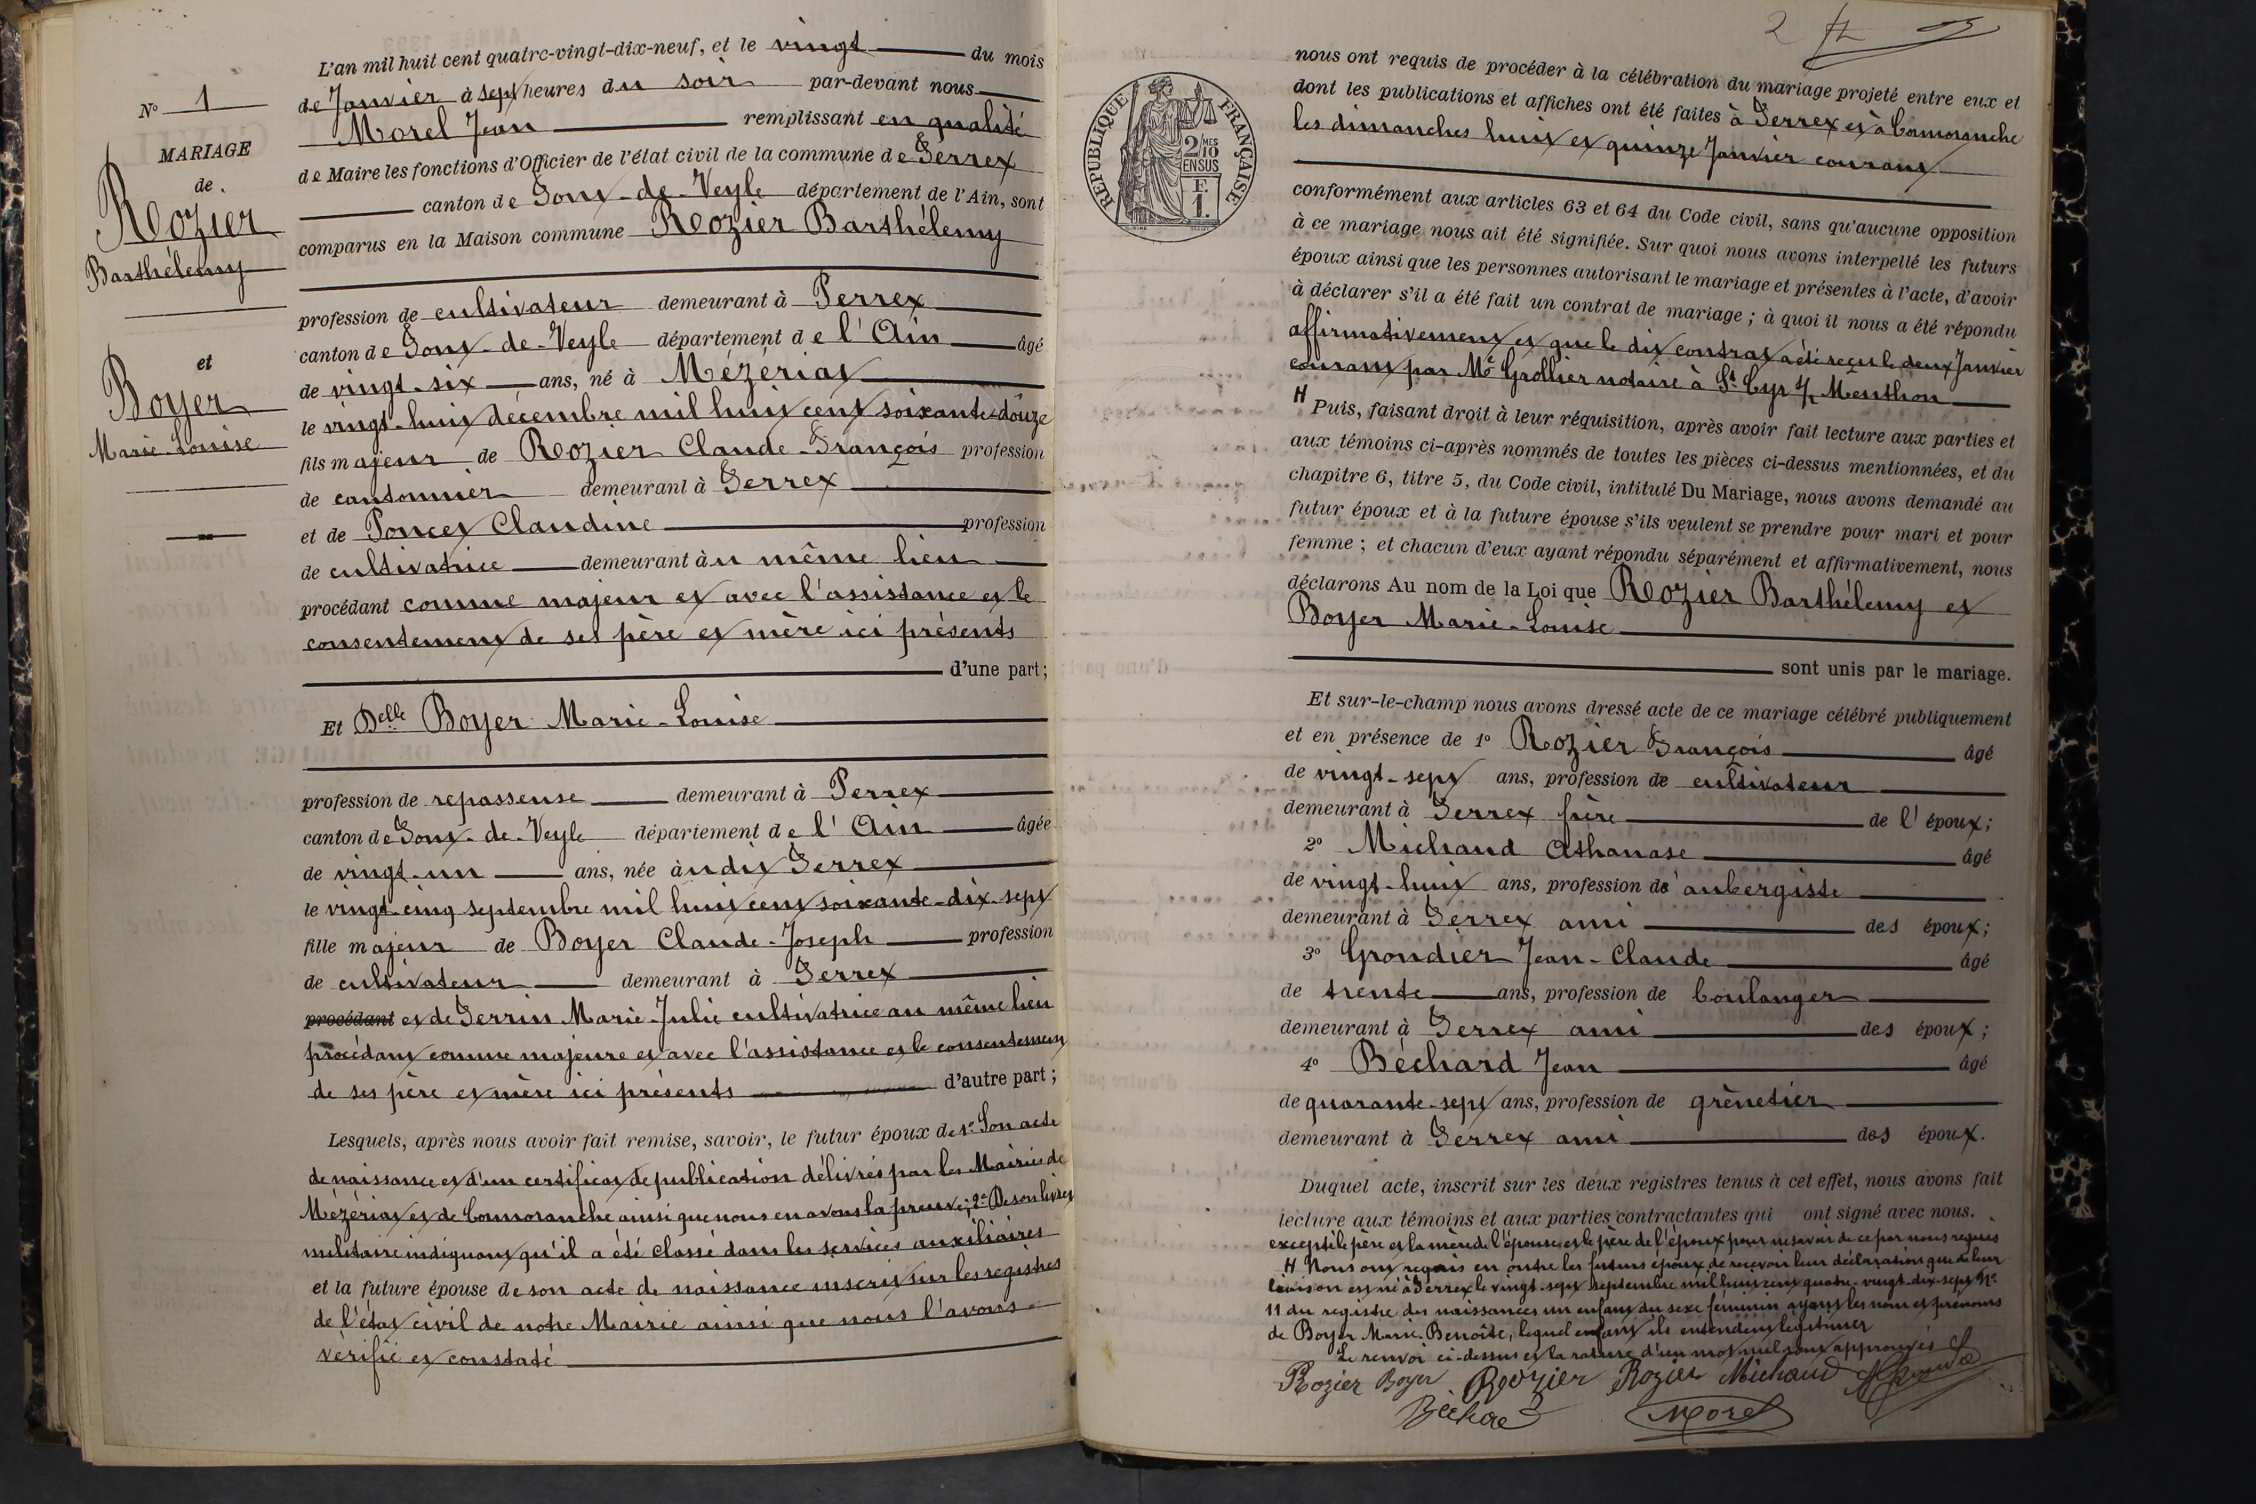 N° 1
MARIAGE
de
Rozier
Barthélemy
et
Boyer
Marie-Louise
L'an mil huit cent quatre-vingt-dix-neuf, et le vingt du mois
de Janvier à sept heures du soir par-devant nous
Morel Jean remplissant en qualité
de Maire les fonctions d'Officier de l'état civil de la commune de Perrex
canton de Pont-de-Veyle département de l'Ain, sont
comparus en la Maison commune Rozier Barthélemy
profession de cultivateur demeurant à Perrex
canton de Pont-de-Veyle département de l'Ain âgé
de vingt-six ans, né à Mézériat
le vingt-huit décembre mil huit cent soixante-douze
fils majeur de Rozier Claude-François profession
de cantonnier demeurant à Perrex
et de Poncet Claudine profession
de cultivatrice demeurant au même lieu
procédant comme majeur et avec l'assistance et le
consentement de ses père et mère ici présents
d'une part;
Et Delle Boyer Marie-Louise
profession de repasseuse demeurant à Perrex
canton de Pont-de-Veyle département de l'Ain âgée
de vingt-un ans, née audit Perrex
le vingt-cinq septembre mil huit cent soixante-dix-sept
fille majeur de Boyer Claude-Joseph profession
de cultivateur demeurant à Perrex
procédant et de Perrin Marie-Julie cultivatrice au même lieu
procédant comme majeure et avec l'assistance et le consentement
de ses père et mère ici présents d'autre part;
Lesquels, après nous avoir fait remise, savoir, le futur époux de 1° Son acte
de naissance et d'un certificat de publication délivrés par les Mairies de
Mézériat et de Cormoranche ainsi que nous en avons la preuve; 2° De son livret
militaire indiquant qu'il a été classé dans les services auxiliaires
et la future épouse de son acte de naissance inscrit sur les registres
de l'état civil de notre Mairie ainsi que nous l'avons
vérifié et constaté
2
REPUBLIQUE FRANÇAISE
2 MES
10
EN SUS
F.
1.
nous ont requis de procéder à la célébration du mariage projeté entre eux et
dont les publications et affiches ont été faites à Perrex et à Cormoranche
les dimanches huit et quinze Janvier courant
conformément aux articles 63 et 64 du Code civil, sans qu'aucune opposition
à ce mariage nous ait été signifiée. Sur quoi nous avons interpellé les futurs
époux ainsi que les personnes autorisant le mariage et présentes à l'acte, d'avoir
à déclarer s'il a été fait un contrat de mariage; à quoi il nous a été répondu
affirmativement et que le dit contrat a été reçu le deux Janvier
courant par Me Grollier notaire à St Cyr s/ Menthon
H Puis, faisant droit à leur réquisition, après avoir fait lecture aux parties et
aux témoins ci-après nommés de toutes les pièces ci-dessus mentionnées, et du
chapitre 6, titre 5, du Code civil, intitulé Du Mariage, nous avons demandé au
futur époux et à la future épouse s'ils veulent se prendre pour mari et pour
femme; et chacun d'eux ayant répondu séparément et affirmativement, nous
déclarons Au nom de la Loi que Rozier Barthélemy et
Boyer Marie-Louise
sont unis par le mariage.
Et sur-le-champ nous avons dressé acte de ce mariage célébré publiquement
et en présence de 1° Rozier François âgé
de vingt-sept ans, profession de cultivateur
demeurant à Perrex frère de l'époux;
2° Michaud Athanase âgé
de vingt-huit ans, profession d'aubergiste
demeurant à Perrex ami des époux;
3° Grondier Jean-Claude âgé
de trente ans, profession de boulanger
demeurant à Perrex ami des époux;
4° Béchard Jean âgé
de quarante-sept ans, profession de grènetier
demeurant à Perrex ami des époux.
Duquel acte, inscrit sur les deux registres tenus à cet effet, nous avons fait
lecture aux témoins et aux parties contractantes qui ont signé avec nous.
excepté le père et la mère de l'épouse et le père de l'époux pour ne savoir de ce par nous requis
H Nous ont requis en outre les futurs époux de recevoir leur déclaration que de leur
liaison est né à Perrex le vingt-sept septembre mil huit cent quatre-vingt-dix-sept N°
11 du registre des naissances un enfant du sexe féminin ayant les nom et prénoms
de Boyer Marie-Benoîte, lequel enfant ils entendent légitimer
Le renvoi ci-dessus et la rature d'un mot nul sont approuvés
Rozier Boyer Rozier Rozier Michaud
Béchard Morel